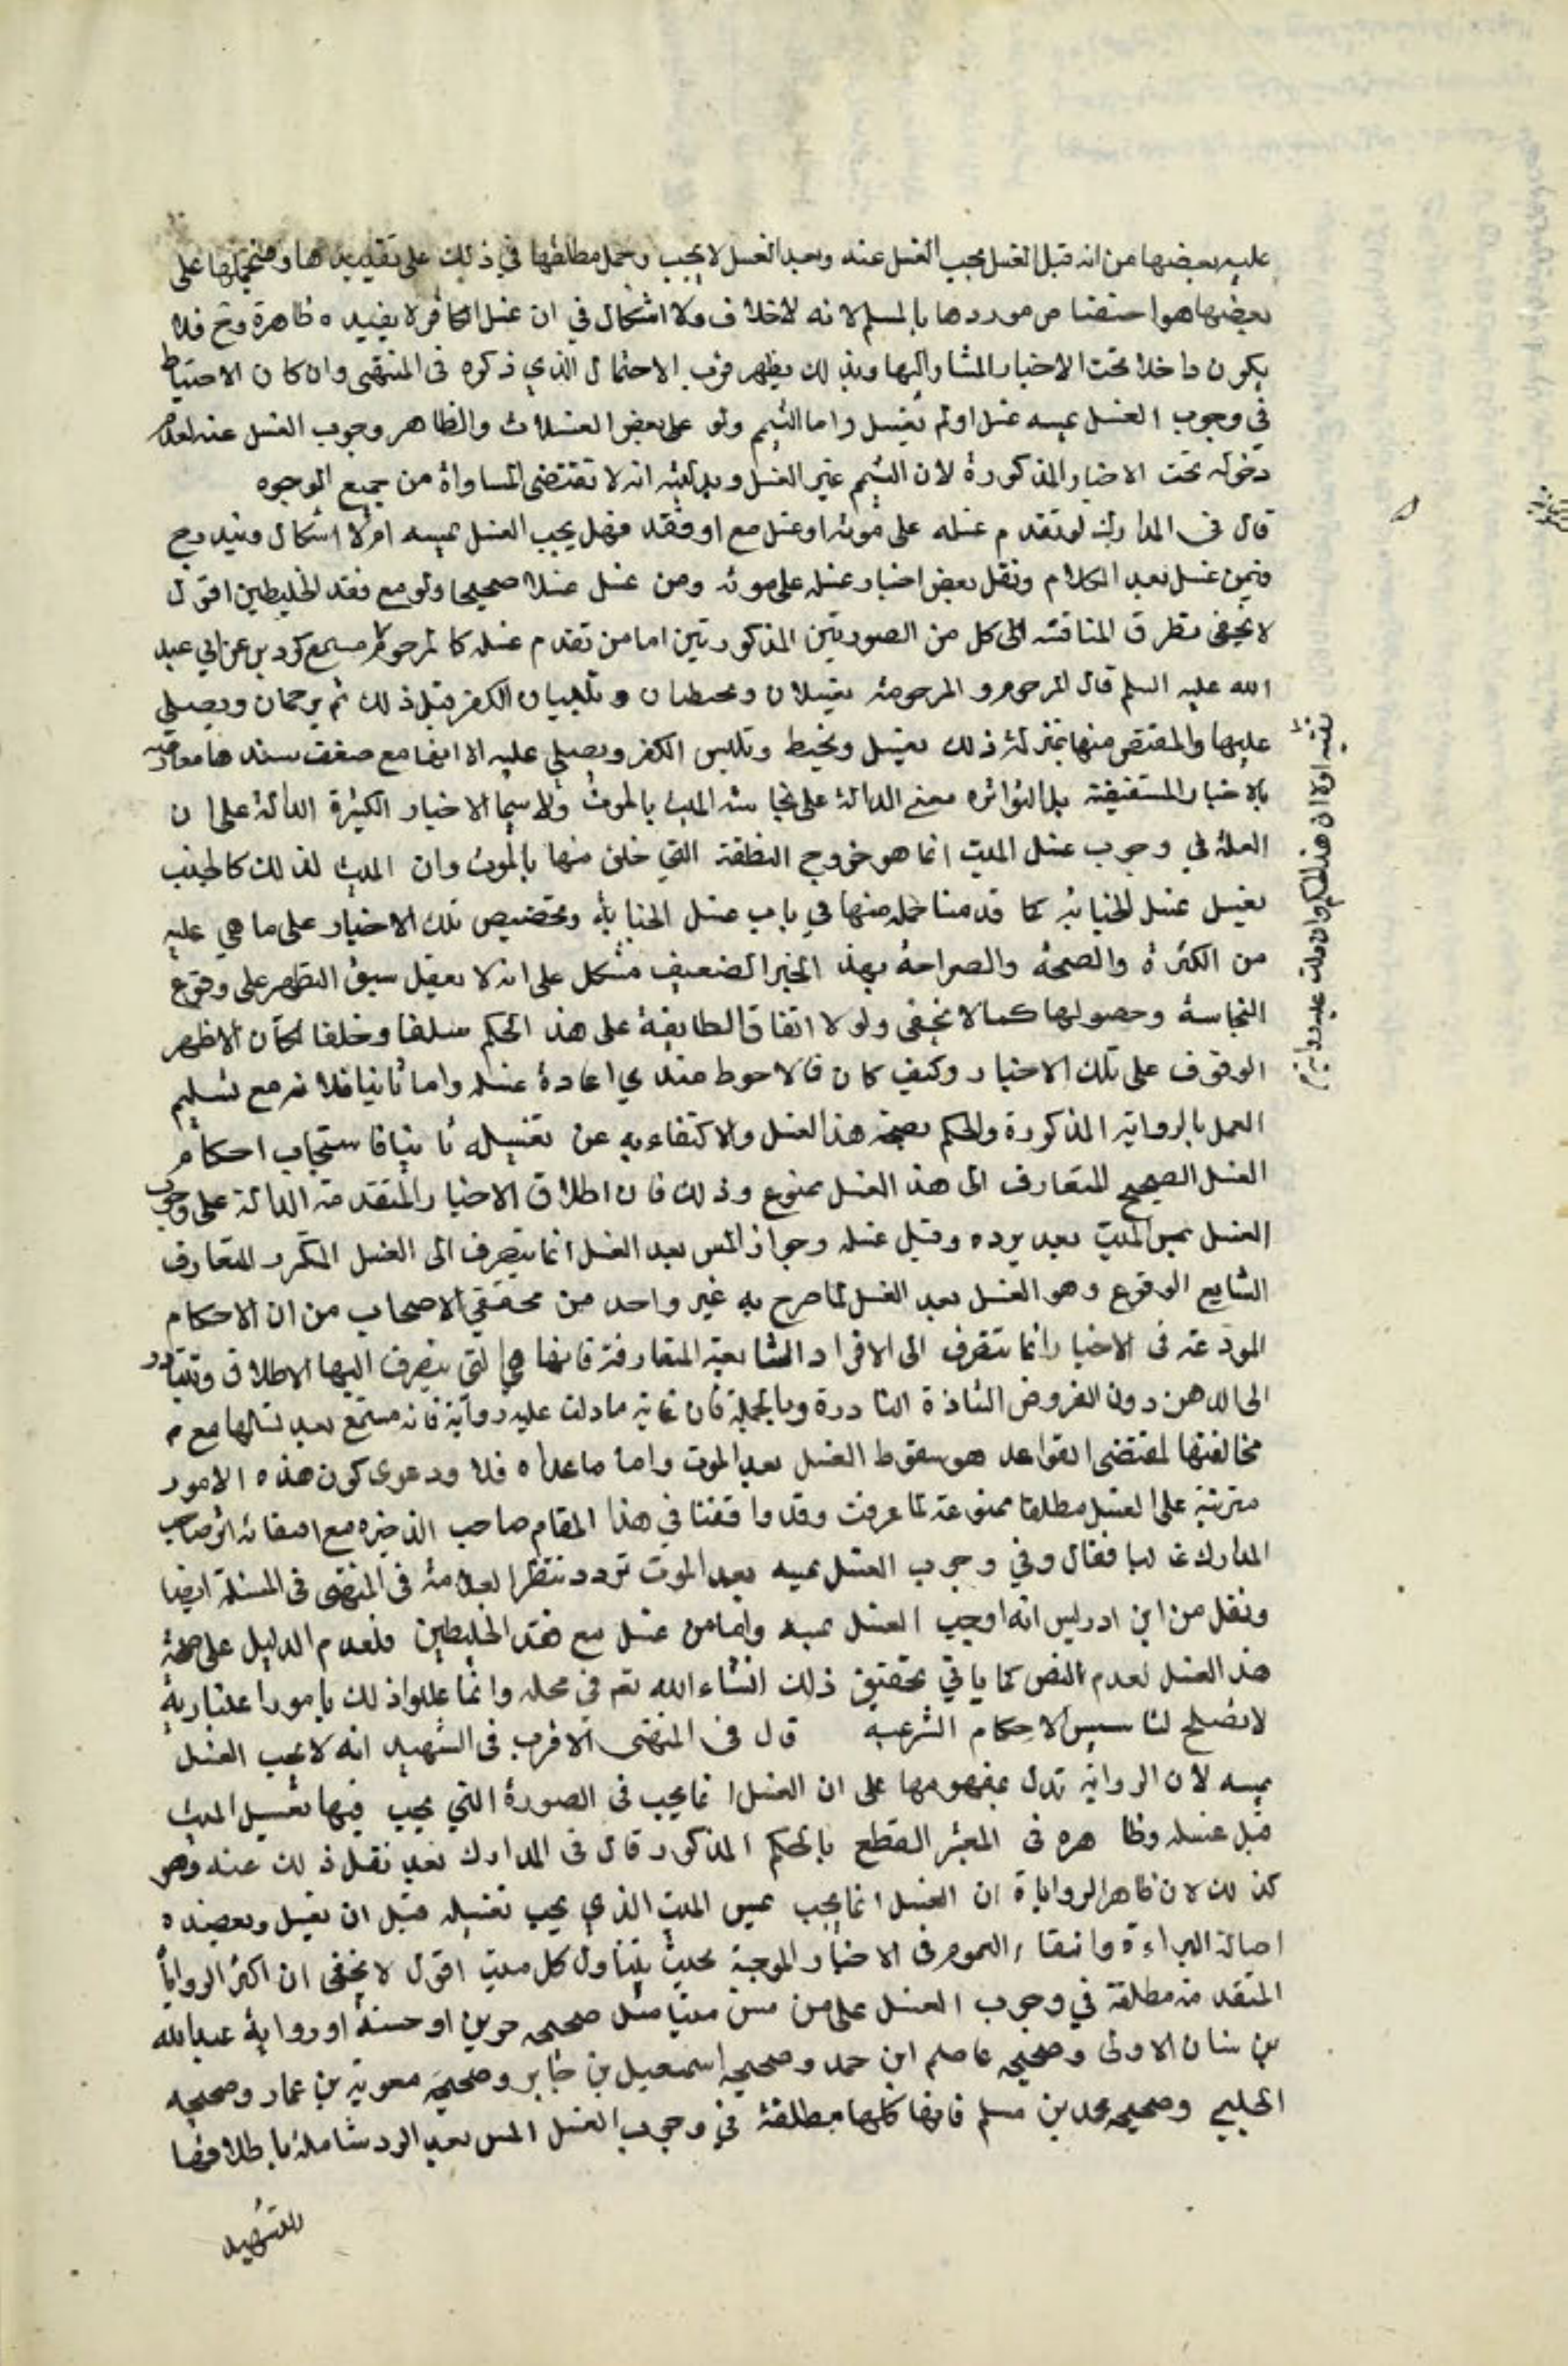 عليه بعضها من انه قبل الغسل يجب الغسل عنده وبعد الغسل لا يجب وحمل مطلقها في ذلك على مقيدها و على
بعضها هو اختصاص موردها بالمسلم لانه لا خلاف ولا اشكال في ان غسل الكافر لا يفيده طاهرة وح فلا
يكون داخلا تحت الاخبار المشار اليها وبذلك يظهر قرب الاحتمال الذي ذكره في المنتهى وان كان الاحتياط
في وجوب الغسل بمسه غسل او لم يغسل واما التيمم ولو على بعض الغسلات والظاهر وجوب الغسل عنه لعدم
دخوله تحت الاخبار المذكورة لان التيمم غير الغسل وبدليته لا تقتضي المساواة من جميع الوجوه
قال في المدارك لو تقدم غسله على موته او غسل مع او فقد فهل يجب الغسل بمسه ام لا اشكال وفيه وج
فيمن غسل بعد الكلام ونقل بعض اخبار غسله على موته ومن غسل غسلا صحيحا ولو مع فقد الخليطين اقول
لا يخفى تطرق المناقشة الى كل من الصورتين المذكورتين اما من تقدم غسله كالمرجوم مسمع كردين عن ابي عبد
الله عليه السلم قال المرجوم والمرجومة يغسلان ويحنطان ويلبسان الكفن قبل ذلك ثم يرجمان ويصلى
عليها والمقتص منها بمنزلة ذلك يغسل ويحنط ويلبس الكفن ويصلي عليه الا انها مع ضعف سندها معارضه
بالاخبار المستفيضة بل المتواتره معنى الدالة على نجاسة الميت بالموت ولا سيما الاخبار الكثيرة الدالة على ان
العلة في وجوب غسل الميت انما هو خروج النطفة التي خلق منها بالموت وان الميت لذلك كالجنب
يغسل غسل الجنابة كما قدمنا جمله منها في باب غسل الجنابة وتخصيص تلك الاخبار على ما هي عليه
من الكثرة والصحة والصراحة بهذا الخبر الضعيف مشكل على انه لا يعقل سبق التطهر على وقوع
النجاسة وحصولها كما لا يخفى ولو لا اتفاق الطايفة على هذا الحكم سلفا وخلفا لكان الاظهر
الوقوف على تلك الاخبار وكيف كان فالاحوط عندي اعادة غسله واما ثانيا فلانه مع تسليم
العمل بالرواية المذكورة والحكم بصحة هذا الغسل والاكتفاء به عن تغسيله ثانيا فاستجاب احكام
الغسل الصحيح المتعارف الى هذا الغسل ممنوع وذلك فان اطلاق الاخبار المتقدمة الدالة على وجوب
الغسل بمس الميت بعد برده وقبل غسله وجواز المس بعد الغسل انما يتصرف الى الغسل المتكرر المتعارف
الشايع الوقوع وهو الغسل بعد الغسل لما صرح به غير واحد من محققي الاصحاب من ان الاحكام
المودعة في الاخبار انما تتصرف الى الافراد الشايعة المتعارفة فانها هي التي يتصرف اليها الاطلاق وتتبادر
الى الذهن دون الفروض الشاذة النادرة وبالجملة فان غاية ما دلت عليه رواية مسمع بعد تسليمها مع
مخالفتها لمقتضى القواعد هو سقوط الغسل بعد الموت واما ما عداه فلا ودعوى كون هذه الامور
مترتبة على الغسل مطلقا ممنوعة لما عرفت وقد وافقنا في هذا المقام صاحب الذخيره مع اقتفائه اثر صاحب
المدارك غالبا فقال وفي وجوب الغسل بمسه بعد الموت تردد نظرا في المنتهى في المسئلة ايضا
ونقل من ابن ادريس انه اوجب الغسل بمسه واما من غسل مع فقد الخليطين فلعدم الدليل على صحة
هذا الغسل لعدم النص كما ياتي تحقيق ذلك انشاء الله تعم في محله وانما عللوا ذلك بامور اعتبارية
لا تصلح لتاسيس الاحكام الشرعيه قال في المنتهى الاقرب في الشهيد انه لا يجب الغسل
بمسه لان الرواية تدل بمفهومها على ان الغسل انما يجب في الصورة التي يجب فيها تغسيل الميت
قبل غسله وظاهره في المعتبر القطع بالحكم المذكور قال في المدارك بعد نقل ذلك عنه وهو
كذلك لان ظاهر الروايات ان الغسل انما يجب بمس الميت الذي يجب تغسيله قبل ان يغسل ويعضده
اصالة البراءة وانتفاء العموم في الاخبار الموجبة بحيث يتناول كل ميت اقول لا يخفى ان اكثر الروايات
المتقدمة مطلقة في وجوب الغسل على من مس ميتا مثل صحيحه حريز او حسنة او رواية عبد الله
بن سنان الاولى وصحيحه عاصم ابن حمد وصحيحه اسمعيل بن جابر وصحيحة معوية بن عمار وصحيحه
الحلبي وصحيحه محمد بن مسلم فانها كلها مطلقة في وجوب الغسل المس بعد البرد شاملة باطلاقها
للشهيد